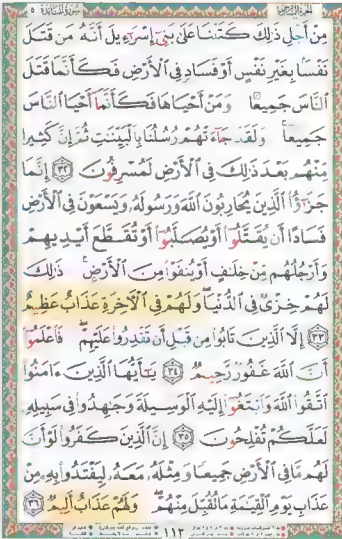 الجزء السادس سورة المائدة ٥
مِنْ أَجْلِ ذَٰلِكَ كَتَبْنَا عَلَىٰ بَنِىٓ إِسْرَٰٓءِيلَ أَنَّهُۥ مَن قَتَلَ
نَفْسًۢا بِغَيْرِ نَفْسٍ أَوْ فَسَادٍ فِى ٱلْأَرْضِ فَكَأَنَّمَا قَتَلَ
ٱلنَّاسَ جَمِيعًا وَمَنْ أَحْيَاهَا فَكَأَنَّمَآ أَحْيَا ٱلنَّاسَ
جَمِيعًا ۚ وَلَقَدْ جَآءَتْهُمْ رُسُلُنَا بِٱلْبَيِّنَٰتِ ثُمَّ إِنَّ كَثِيرًا
مِّنْهُم بَعْدَ ذَٰلِكَ فِى ٱلْأَرْضِ لَمُسْرِفُونَ ٣٢ إِنَّمَا
جَزَٰٓؤُا۟ ٱلَّذِينَ يُحَارِبُونَ ٱللَّهَ وَرَسُولَهُۥ وَيَسْعَوْنَ فِى ٱلْأَرْضِ
فَسَادًا أَن يُقَتَّلُوٓا۟ أَوْ يُصَلَّبُوٓا۟ أَوْ تُقَطَّعَ أَيْدِيهِمْ
وَأَرْجُلُهُم مِّنْ خِلَٰفٍ أَوْ يُنفَوْا۟ مِنَ ٱلْأَرْضِ ۚ ذَٰلِكَ
لَهُمْ خِزْىٌ فِى ٱلدُّنْيَا ۖ وَلَهُمْ فِى ٱلْءَاخِرَةِ عَذَابٌ عَظِيمٌ
٣٣ إِلَّا ٱلَّذِينَ تَابُوا۟ مِن قَبْلِ أَن تَقْدِرُوا۟ عَلَيْهِمْ ۖ فَٱعْلَمُوٓا۟
أَنَّ ٱللَّهَ غَفُورٌ رَّحِيمٌ ٣٤ يَٰٓأَيُّهَا ٱلَّذِينَ ءَامَنُوا۟
ٱتَّقُوا۟ ٱللَّهَ وَٱبْتَغُوٓا۟ إِلَيْهِ ٱلْوَسِيلَةَ وَجَٰهِدُوا۟ فِى سَبِيلِهِۦ
لَعَلَّكُمْ تُفْلِحُونَ ٣٥ إِنَّ ٱلَّذِينَ كَفَرُوا۟ لَوْ أَنَّ
لَهُم مَّا فِى ٱلْأَرْضِ جَمِيعًا وَمِثْلَهُۥ مَعَهُۥ لِيَفْتَدُوا۟ بِهِۦ مِنْ
عَذَابِ يَوْمِ ٱلْقِيَٰمَةِ مَا تُقُبِّلَ مِنْهُمْ ۖ وَلَهُمْ عَذَابٌ أَلِيمٌ ٣٦
١١٣